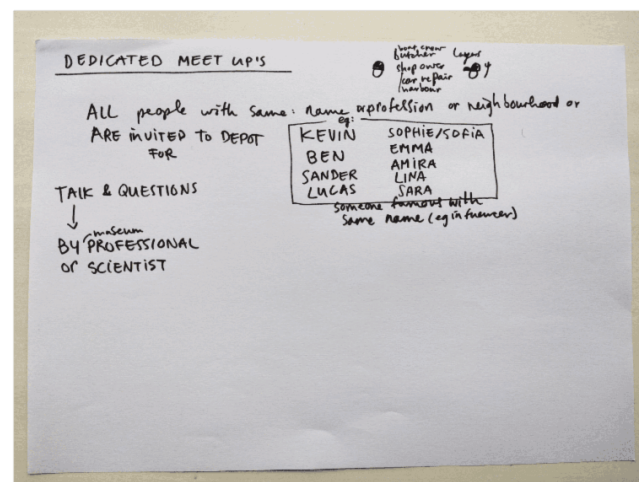 DEDICATED MEET UP'S
butcher
shop owner
car repair
harbour
ALL people with same: name or profession or neighbourhood or
ARE INVITED TO DEPOT
FOR
eg:
KEVIN SOPHIE/SOFIA
BEN EMMA
SANDER AMIRA
LUCAS LINA
SARA
someone famous with
same name (eg influencer)
TALK & QUESTIONS
museum
BY PROFESSIONAL
or SCIENTIST